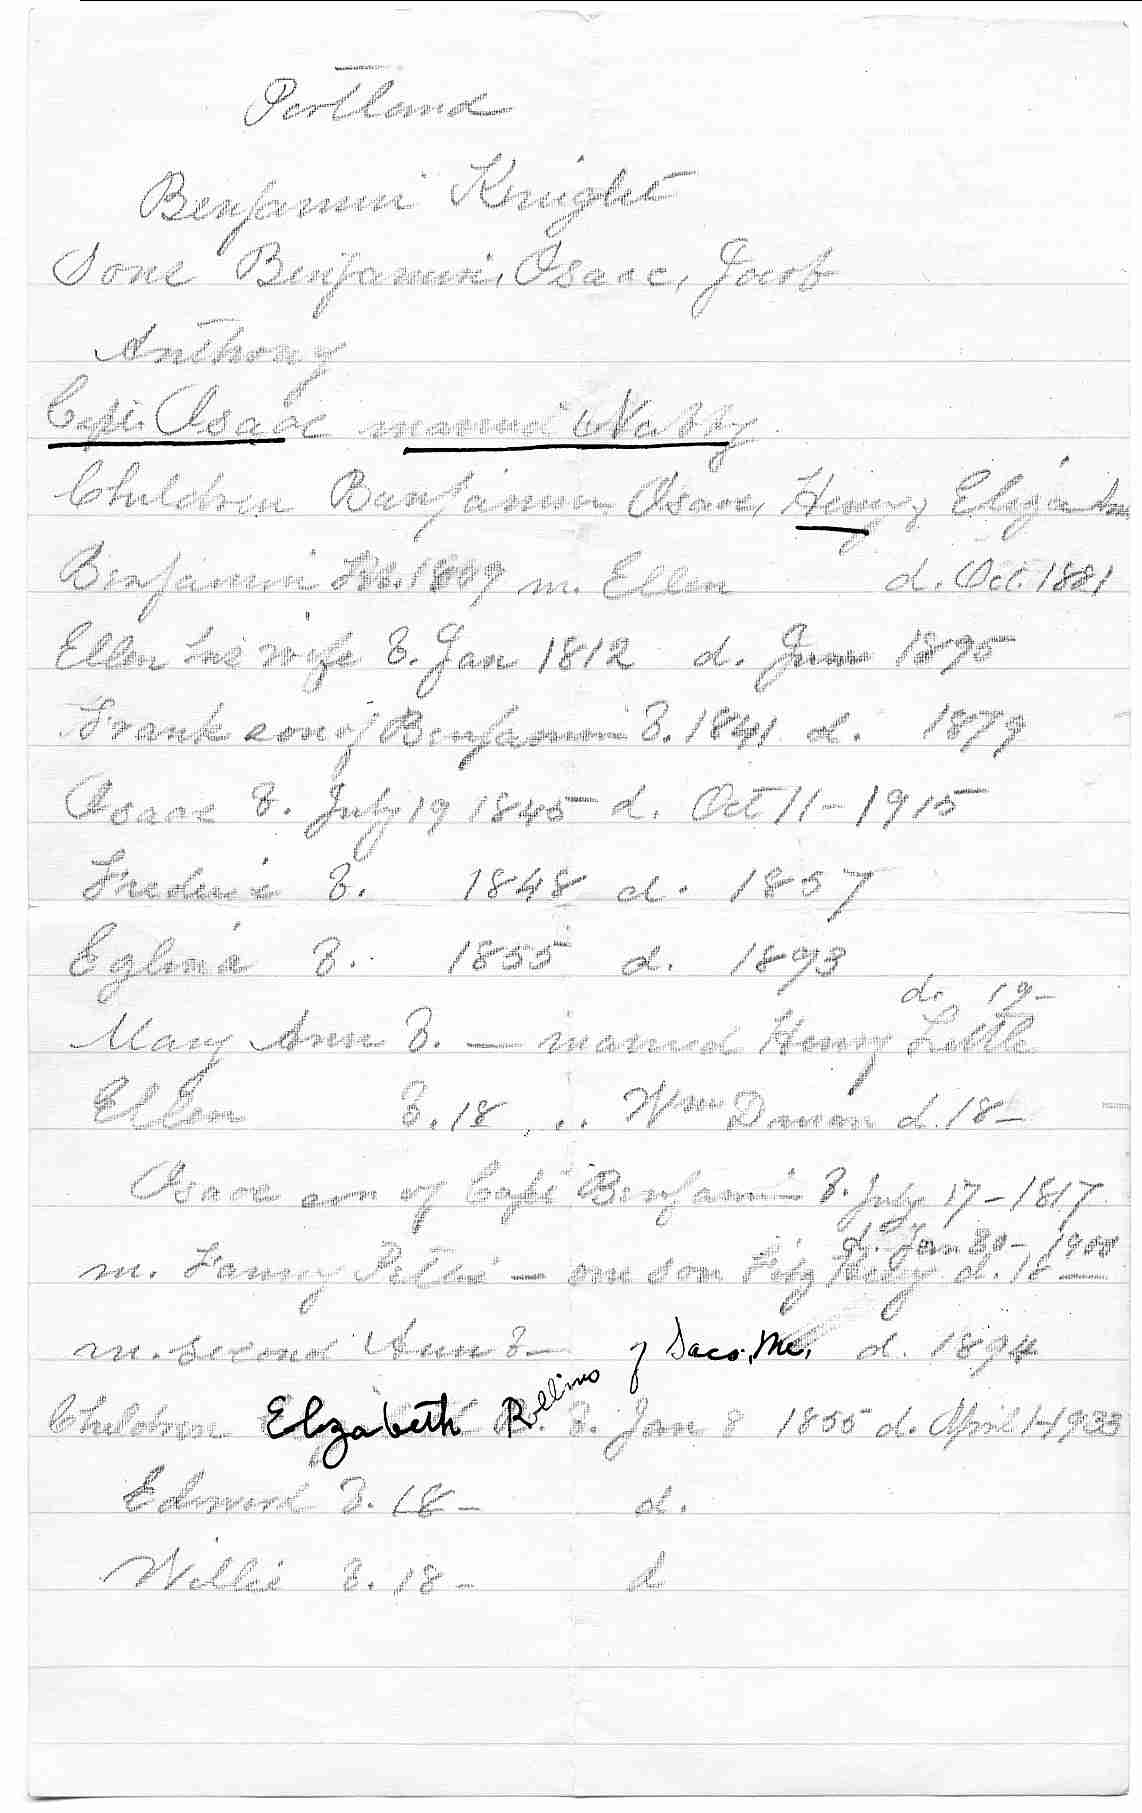 Portland
Benjamin Knight
Sons Benjamin, Isaac, Jacob
Anthony
Capt. Isaac married Nabby
Children Benjamin Isaac, Henry, Eliza Ann
Benjamin 1809 m. Ellen d. Oct. 1881
Ellen his wife B. Jan 1812 d. June 1895
Frank son of Benjamin B. 1841 d. 1879
Isaac B. July 19 1845 d. Oct 11 - 1915
Frederic B. 1848 d. 1857
B. 1855 d. 1893
d. 19-
Mary Ann B. - married Henry Little
Ellen B. 18 , .. Wm d. 18-
Isaac son of Capt Benjamin B. July 17 - 1817
d. Jan 30 - 1900
m. Fanny - one son Fitz Henry d. 18-
m. second Ann B- of Saco, Me, d. 1894
Children Elizabeth Rollins B. Jan 8 1855 d. April 1 - 1933
Edward B. 18- d.
Willie B. 18- d